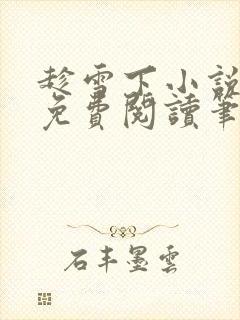 趁雪下小說
免費閱讀筆
石丰墨雲